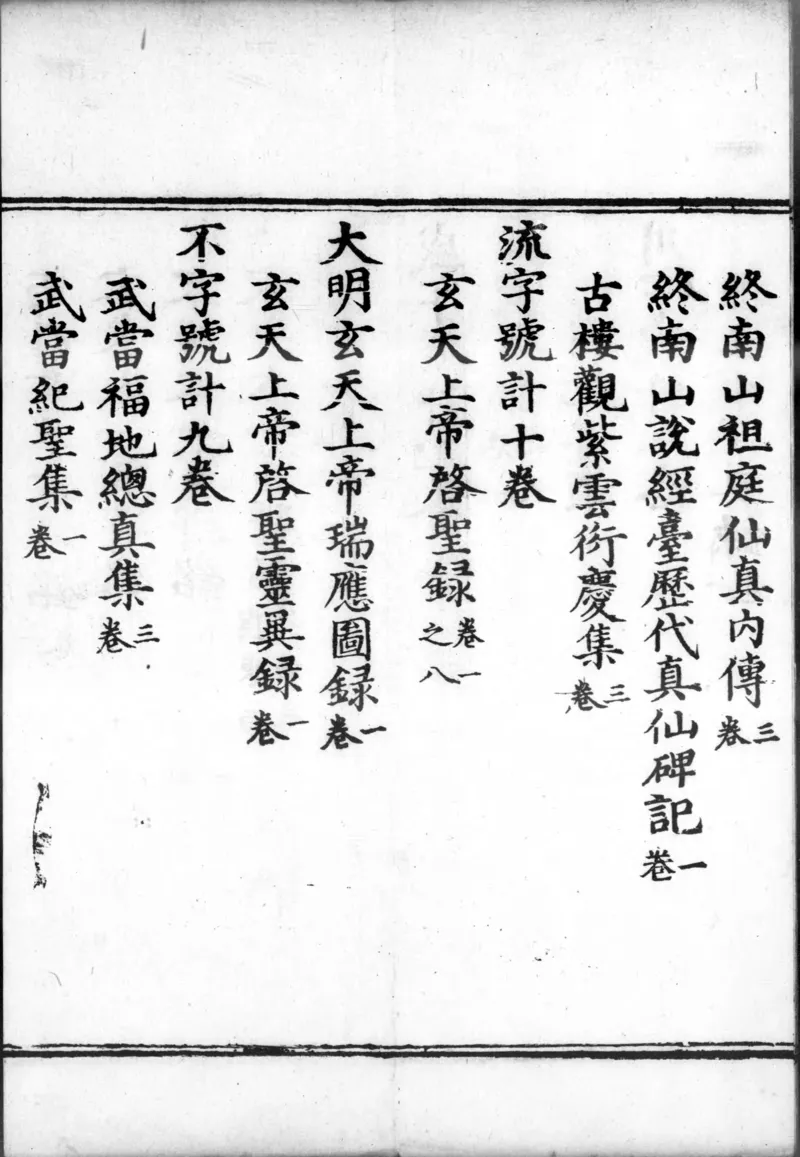 終南山祖庭仙真内傳三卷
終南山說經臺歷代真仙碑記一卷
古樓觀紫雲衍慶集三卷
流字號計十卷
玄天上帝啓聖録卷一之八
大明玄天上帝瑞應圖録一卷
玄天上帝啓聖靈異録一卷
不字號計九卷
武當福地總真集三卷
武當紀聖集一卷